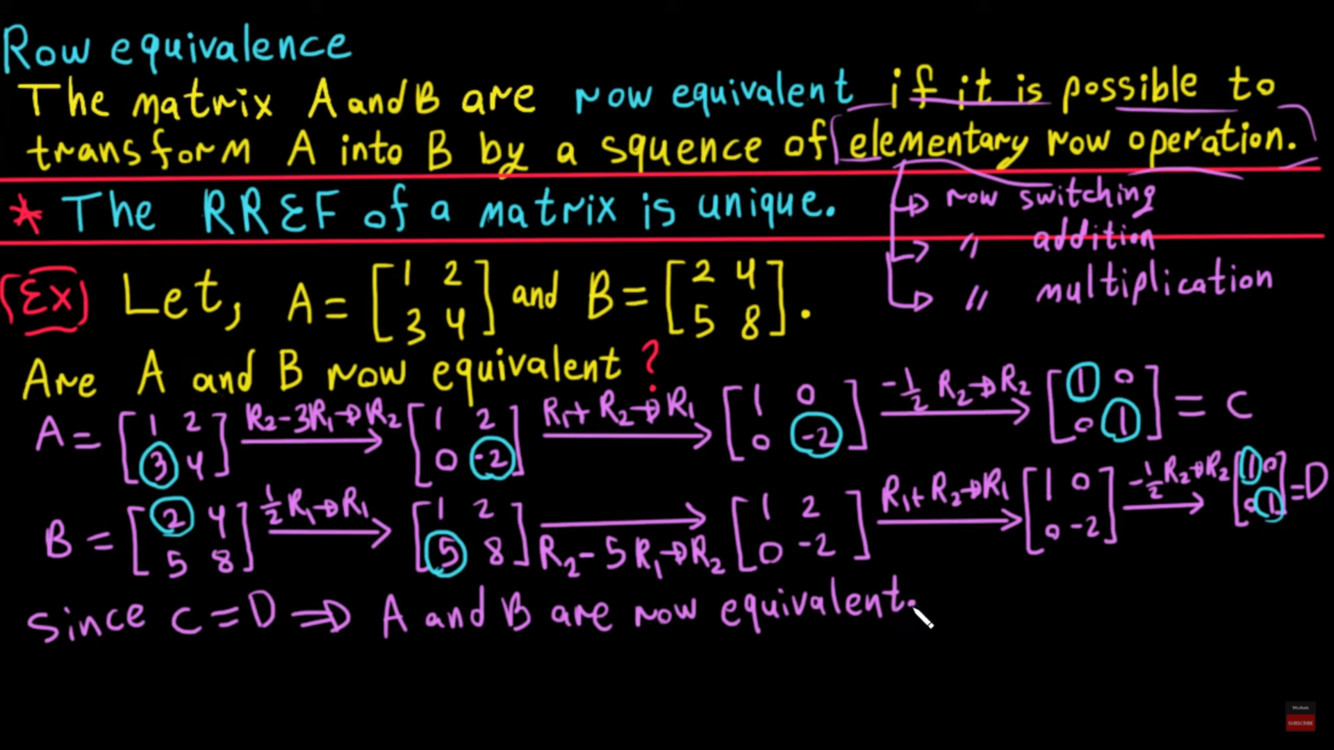 Row equivalence
The matrix A and B are row equivalent if it is possible to
transform A into B by a squence of elementary row operation.
* The RREF of a matrix is unique.
→ row switching
→ " addition
→ " multiplication
(Ex) Let, A = [1 2; 3 4] and B = [2 4; 5 8].
Are A and B row equivalent ?
A = [1 2; 3 4] R₂-3R₁→R₂ [1 2; 0 -2] R₁+R₂→R₁ [1 0; 0 -2] -1/2 R₂→R₂ [1 0; 0 1] = C
B = [2 4; 5 8] 1/2 R₁→R₁ [1 2; 5 8] R₂-5R₁→R₂ [1 2; 0 -2] R₁+R₂→R₁ [1 0; 0 -2] -1/2 R₂→R₂ [1 0; 0 1] = D
Since C = D ⇒ A and B are row equivalent.
SUBSCRIBE